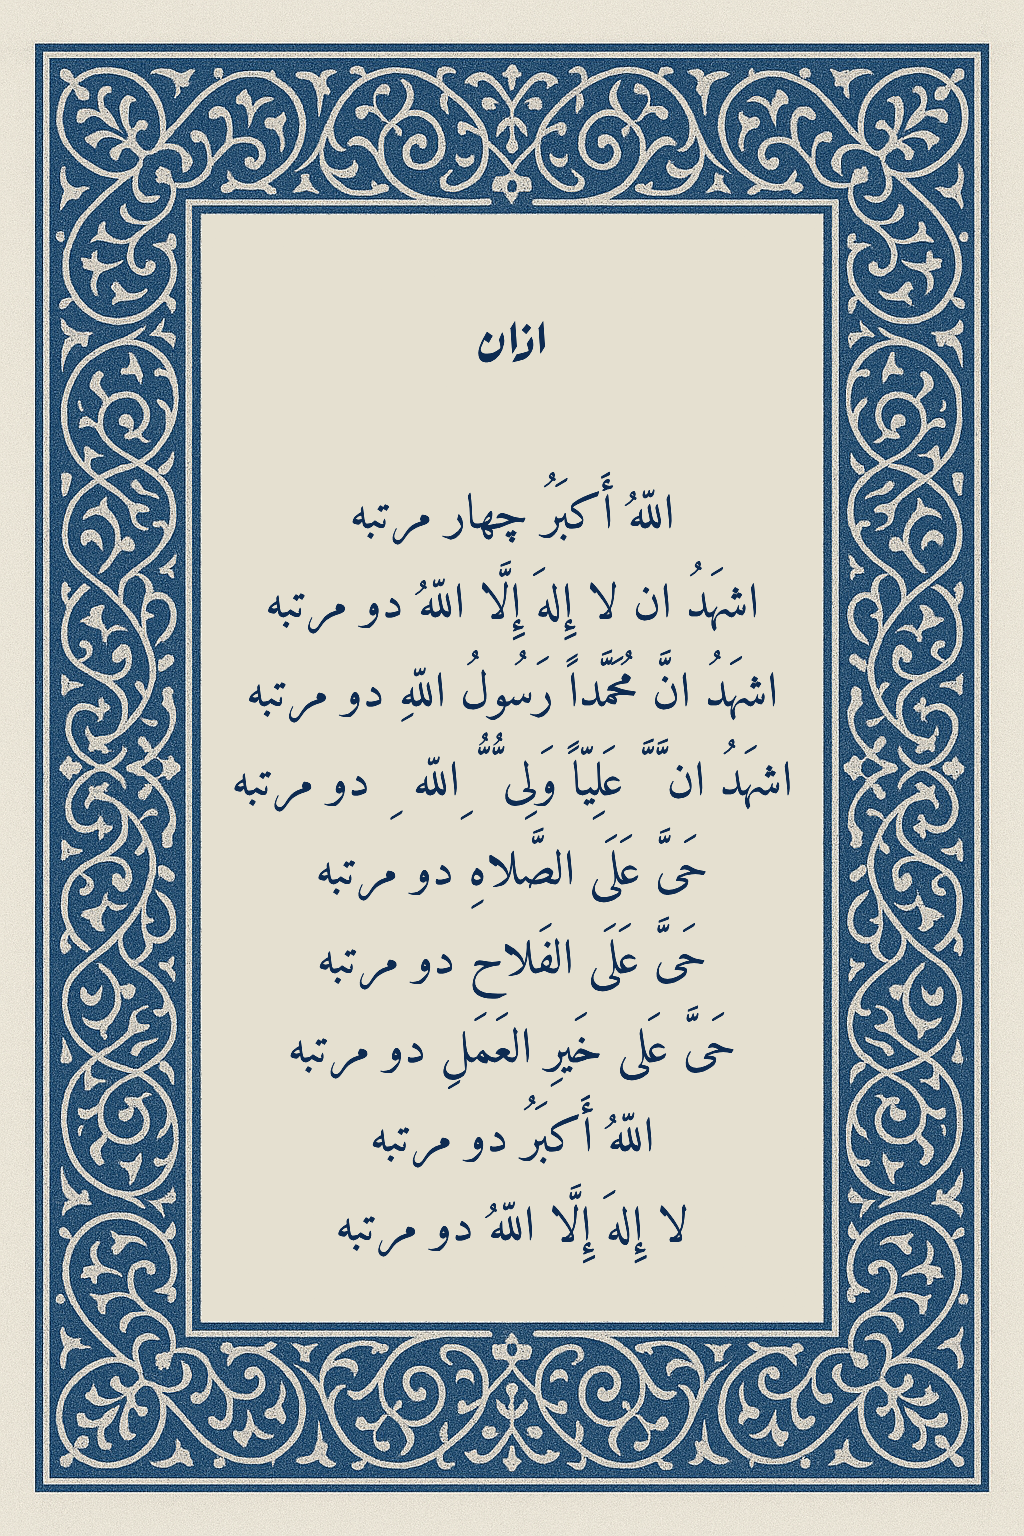 اذان
اللّهُ أَكبَرُ چهار مرتبه
اشهَدُ ان لا إِلهَ إِلَّا اللّهُ دو مرتبه
اشهَدُ انَّ مُحَمَّداً رَسُولُ اللّهِ دو مرتبه
اشهَدُ ان َّ َّ عَلِيّاً وَلِی ُّ ُّ ِالله ِ دو مرتبه
حَیَّ عَلَی الصَّلاهِ دو مرتبه
حَیَّ عَلَی الفَلاح دو مرتبه
حَیَّ عَلی خَیرِ العَمَلِ دو مرتبه
اللّهُ أَكبَرُ دو مرتبه
لا إِلهَ إِلَّا اللّهُ دو مرتبه